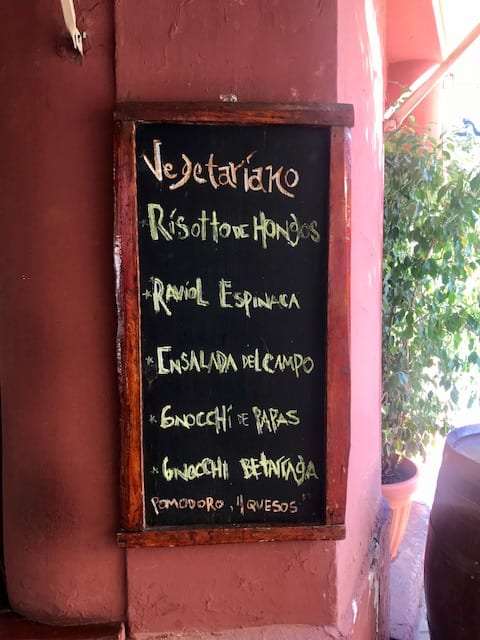 Vegetariano
* RISOTTO DE HONGOS
* RAVIOL ESPINACA
* ENSALADA DEL CAMPO
* GNOCCHI DE PAPAS
* GNOCCHI BETARRAGA
POMODORO, "4 QUESOS"